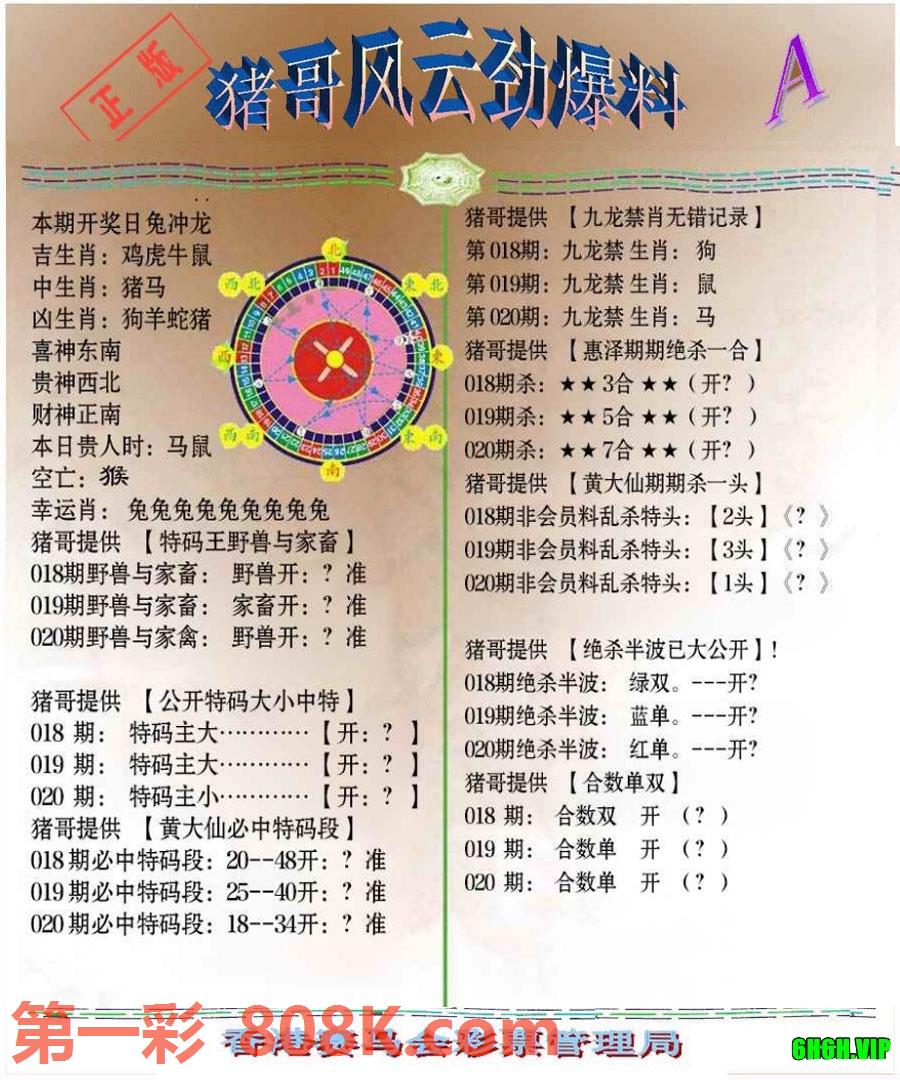 正版
猪哥风云劲爆料
A
本期开奖日兔冲龙
吉生肖：鸡虎牛鼠
中生肖：猪马
凶生肖：狗羊蛇猪
喜神东南
贵神西北
财神正南
本日贵人时：马鼠
空亡：猴
幸运肖： 兔兔兔兔兔兔兔兔兔
猪哥提供 【特码王野兽与家畜】
018期野兽与家畜： 野兽开：？准
019期野兽与家畜： 家畜开：？准
020期野兽与家禽： 野兽开：？准
猪哥提供 【公开特码大小中特】
018 期： 特码主大…………【开：？】
019 期： 特码主大…………【开：？】
020 期： 特码主小…………【开：？】
猪哥提供 【黄大仙必中特码段】
018期必中特码段：20--48开：？准
019期必中特码段：25--40开：？准
020期必中特码段：18--34开：？准
北
西北
東北
西
東
西南
東南
南
猪哥提供 【九龙禁肖无错记录】
第018期：九龙禁 生肖： 狗
第019期：九龙禁 生肖： 鼠
第020期：九龙禁 生肖： 马
猪哥提供 【惠泽期期绝杀一合】
018期杀：★★3合★★（开？）
019期杀：★★5合★★（开？）
020期杀：★★7合★★（开？）
猪哥提供 【黄大仙期期杀一头】
018期非会员料乱杀特头：【2头】《？》
019期非会员料乱杀特头：【3头】《？》
020期非会员料乱杀特头：【1头】《？》
猪哥提供 【绝杀半波已大公开】！
018期绝杀半波： 绿双。---开？
019期绝杀半波： 蓝单。---开？
020期绝杀半波： 红单。---开？
猪哥提供 【合数单双】
018 期： 合数双 开 （？）
019 期： 合数单 开 （？）
020 期： 合数单 开 （？）
第一彩 808K.com
香港赛马会彩票管理局
6H6H.VIP